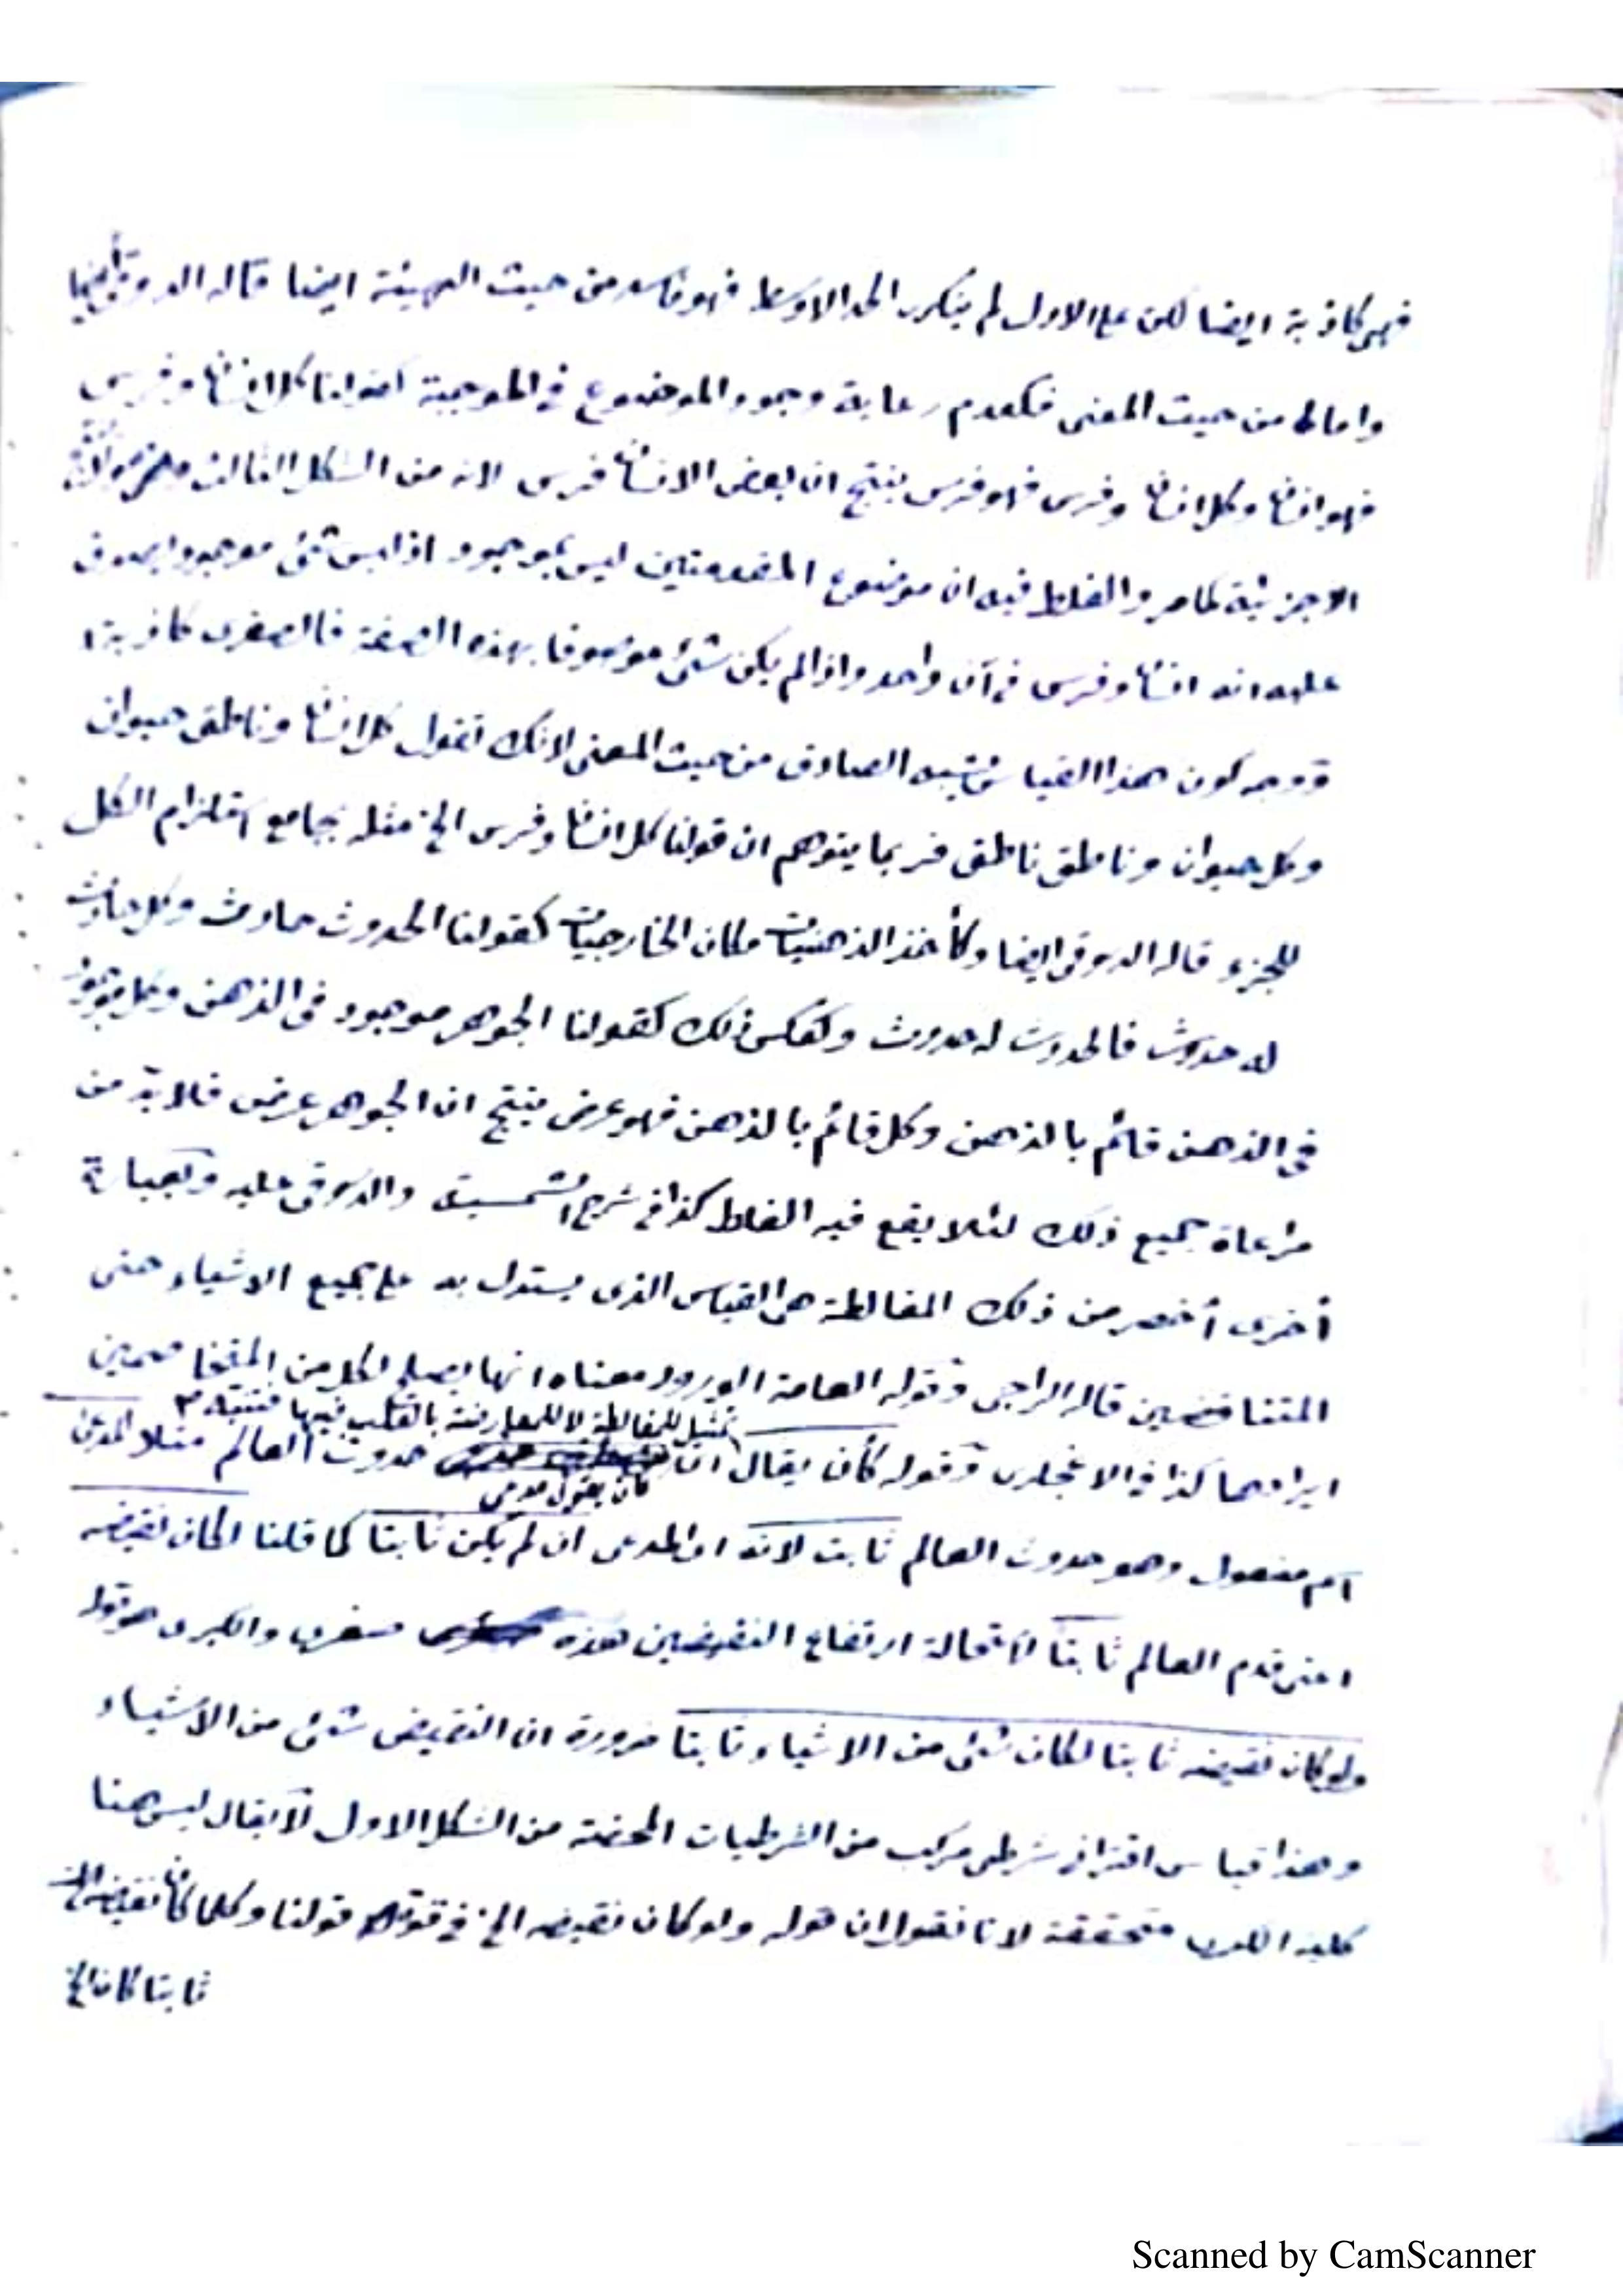 فهي كاذبة ايضا لكن على الاول لم يتكرر الحد الاوسط فهو فاسد من حيث الهيئة ايضا قاله الدسوقي ايضا
واما من حيث المعنى فكعدم رعاية وجود الموضوع في الموجبة كقولنا كل انسان وفرس
فهو انسان وكل انسان وفرس فهو فرس ينتج ان بعض الانسان فرس لانه من الشكل الثالث
الاجزئية كما مر والغلط فيه ان موضوع المقدمتين ليس بموجود اذ ليس شئ موجود يصدق
عليه انه انسان وفرس في آن واحد واذا لم يكن شئ موصوفا بهذه الصفة فالصغرى كاذبة
ووجه كون هذا القياس شبيه الصادق من حيث المعنى لانك تقول كل انسان وناطق حيوان
وكل حيوان وناطق ناطق فربما يتوهم ان قولنا كل انسان وفرس الخ مثله بجامع استلزام الكل
للجزء قاله الدسوقي ايضا وكأخذ الذهنيات مكان الخارجيات كقولنا الحدوث حادث وكل حادث
له حدوث فالحدوث له حدوث وكعكس ذلك كقولنا الجوهر موجود في الذهن وكل موجود
في الذهن قائم بالذهن وكل قائم بالذهن فهو عرض ينتج ان الجوهر عرض فلا بد من
مراعاة جميع ذلك لئلا يقع فيه الغلط كذا في شرح الشمسية والدسوقي عليه وبعبارة
أخرى أخصر من ذلك المغالطة هي القياس الذي يستدل به على جميع الاشياء حتى
المتناقضين قاله الراجى وقوله العامة الورود معناه انها يصلح لكل من المتخاصمين
تمثيل للمغالطة لا للمعارضة بالقلب فيها فتنبه م
ايرادهما كذا في وقوله كأن يقال ان حدوث العالم مثلا المدعى
كأن يقول مدعى
اسم مفعول وهو حدوث العالم ثابت لانه ان المدعى ان لم يكن ثابتا كما قلنا لكان نقيضه
اعنى قدم العالم ثابتا لاستحالة ارتفاع النقيضين هذه صغرى والكبرى هو قوله
ولو كان نقيضه ثابتا لكان شئ من الاشياء ثابتا ضرورة ان النقيض شئ من الاشياء
وهذا قياس اقترانى شرطى مركب من الشرطيات المحضة من الشكل الاول لا يقال ليس هنا
كلية الكبرى متحققة لانا نقول ان قوله ولو كان نقيضه الخ في قوة قولنا وكلما كان نقيض
ثابتا كان الخ
Scanned by CamScanner